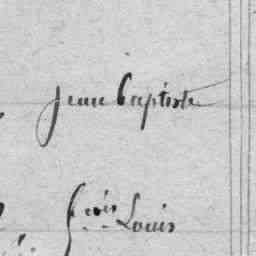 Jean Baptiste
fcois Louis